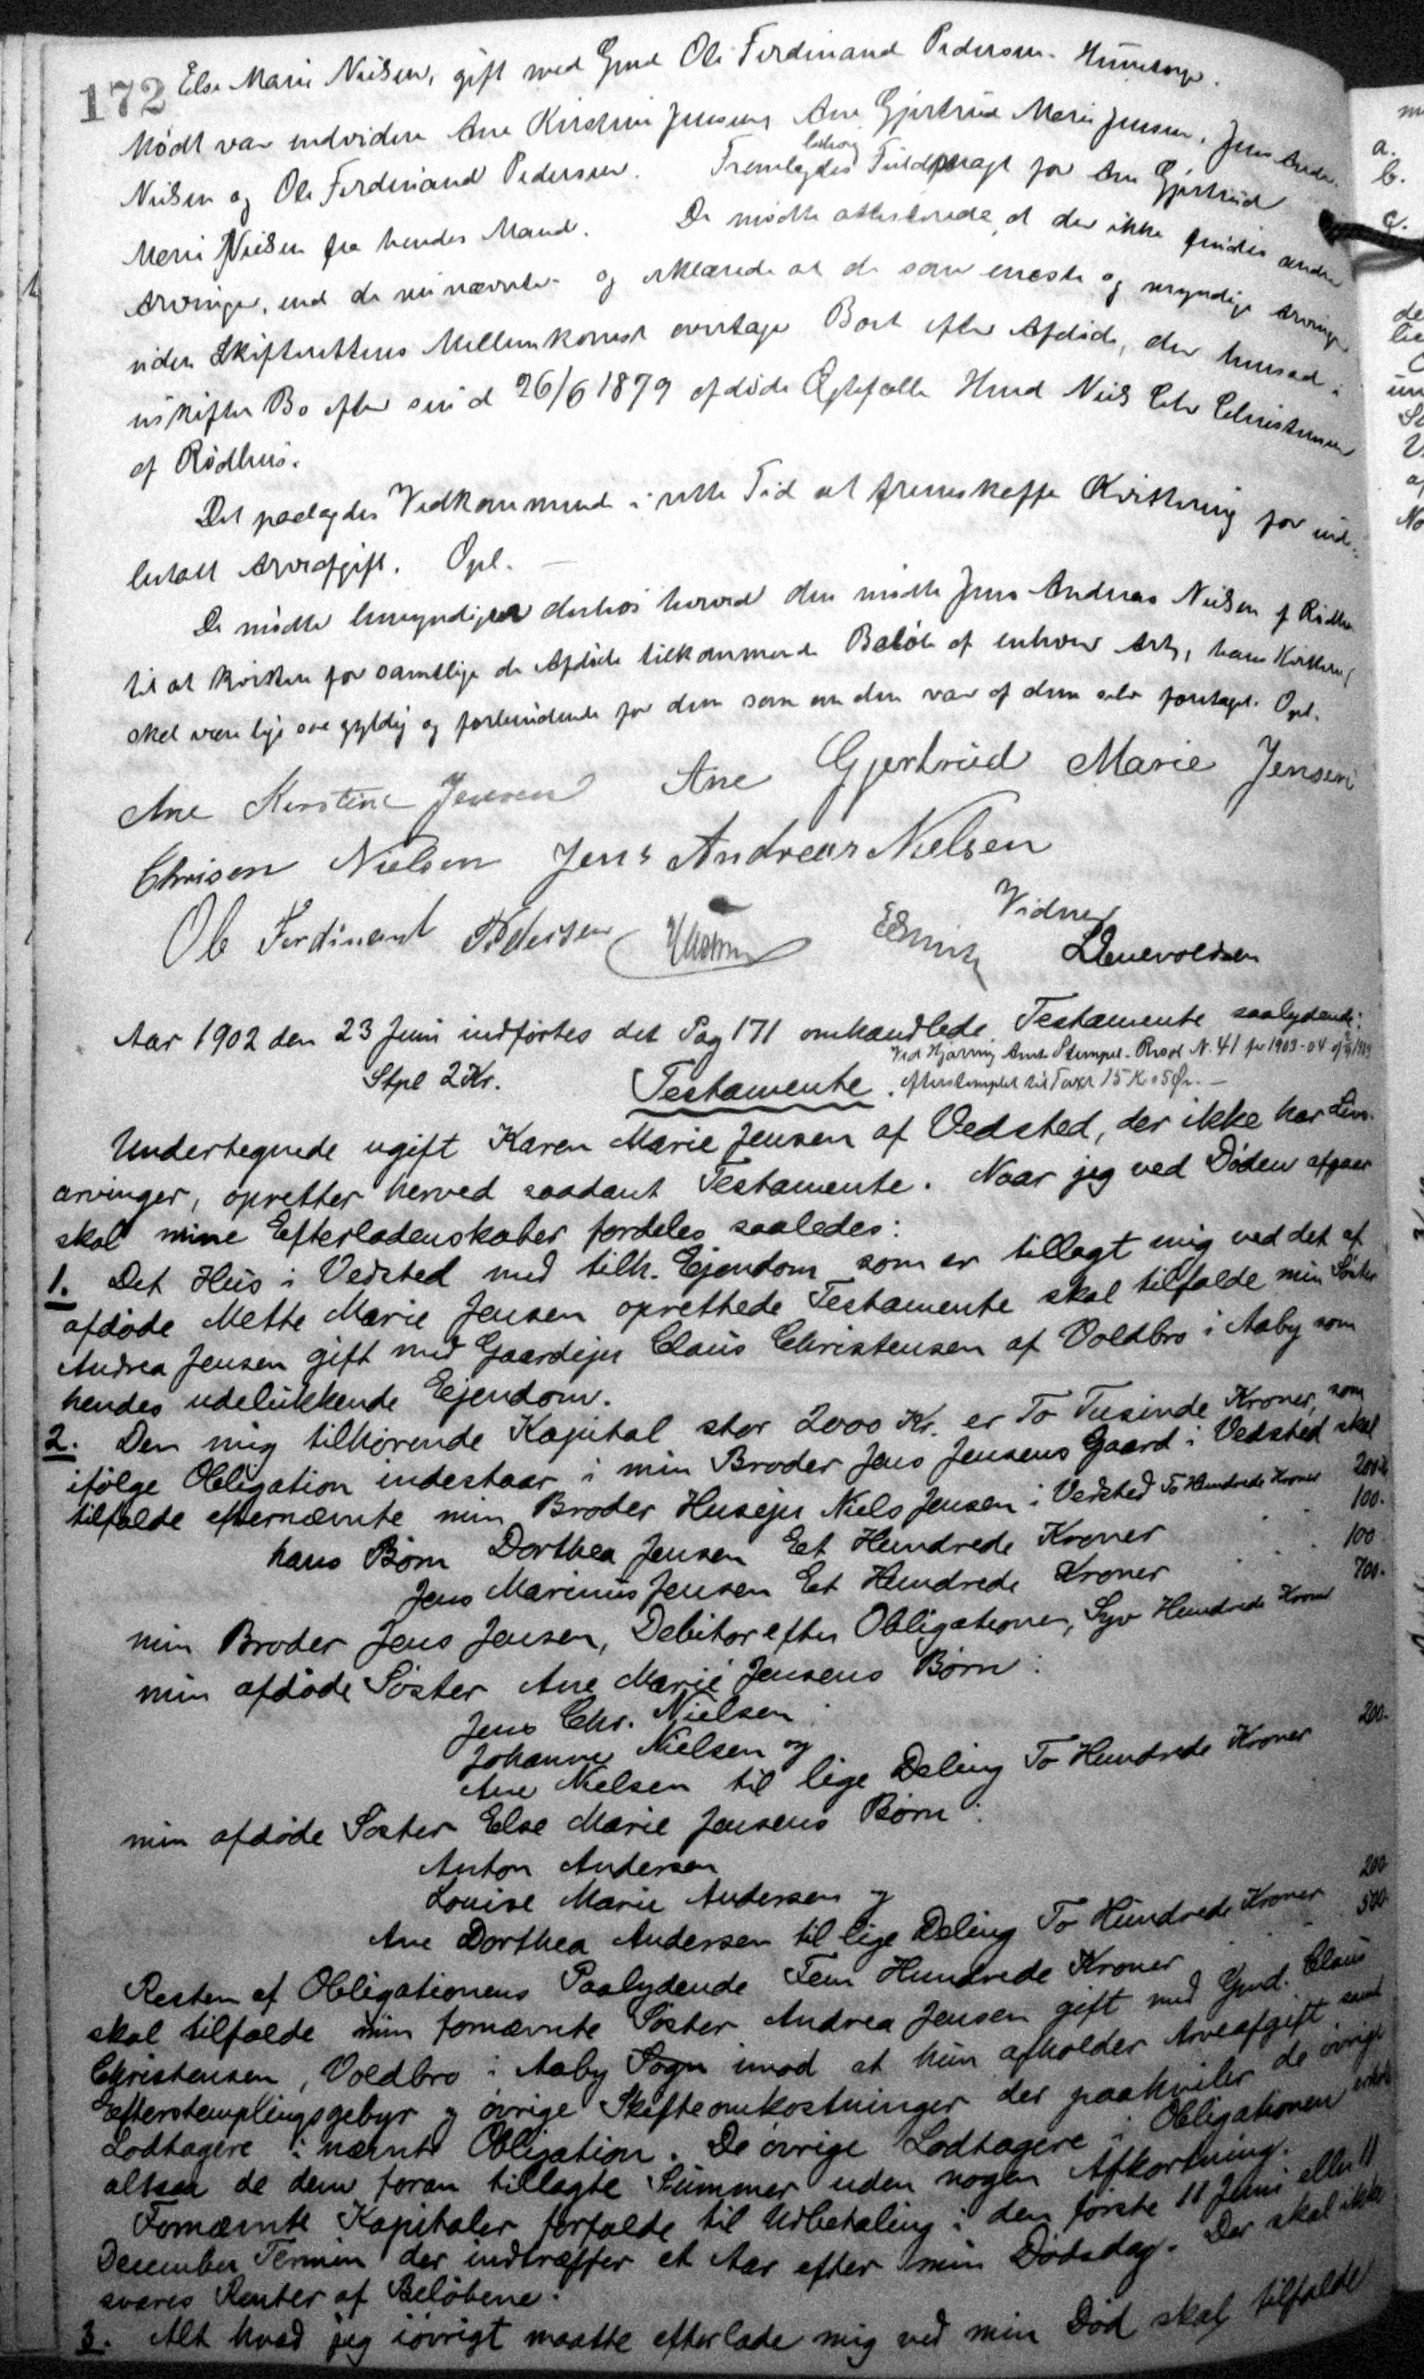 172 Else Marie Nielsen, gift med Gmd Ole Ferdinand Pedersen Hunetorp.
Mødt var endvidere Ane Kirstine Jensen, Ane Gjertrud Marie Jensen, Jens Andr.
Nielsen og Ole Ferdinand Pedersen. Fremlagdes Fuldmagt for Ane Gjertrud
Marie Nielsen fra hendes Mand. De mødte attesterede, at der ikke findes andre
Arvinger, end de nu nævnte og erklærede at de som eneste og myndige Arvinger
uden Skifterettens Mellemkomst overtager Boet efter Afdøde, der hensad i
uskiftet Bo efter sin d 26/6 1879 afdøde Ægtefælle Hmd Niels Chr Christensen
af Rødhus.
Det paalagdes Vedkommende i rette Tid at fremskaffe Kvittering for ind-
betalt Arveafgift. Opl.
De mødte bemyndiger derhos herved den mødte Jens Andreas Nielsen af Rødhus
til at kvittere for samtlige de Afdøde tilkommende Beløb af enhver Art, hans Kvittering
skal være lige saa gyldig og forbindende for dem som om den var af dem selv foretaget. Opl.
Ane Kirstine Jensen Ane Gjertrud Marie Jensen
Chrisen Nielsen Jens Andreas Nielsen
Ole Ferdinant Pedersen
Vidner
ESmith LEnevoldsen
Aar 1902 den 23 Juni indførtes det Pag 171 omhandlede Testamente saalydende:
Ved Hjørring Amts Stempel-Revis N. 41 for 1903-04
Stpl 2 Kr. Testamente. efterstemplet til Taxt 15 K 05 Ør. —
Undertegnede ugift Karen Marie Jensen af Vedsted, der ikke har Livs-
arvinger, opretter herved saadant Testamente. Naar jeg ved Døden afgaar
skal mine Efterladenskaber fordeles saaledes:
1. Det Hus i Vedsted med tilh. Ejendom som er tillagt mig ved det af
afdøde Mette Marie Jensen oprettede Testamente skal tilfalde min Søster
Andrea Jensen gift med Gaardejer Claus Christensen af Voldbro i Aaby som
hendes udelukkende Ejendom.
2. Den mig tilhørende Kapital stor 2000 Kr. er To Tusinde Kroner, som
ifølge Obligation indestaar i min Broder Jens Jensens Gaard i Vedsted skal
tilfalde efternævnte min Broder Husejer Niels Jensen i Vedsted To Hundrede Kroner 200 K
hans Børn Dorthea Jensen Et Hundrede Kroner 100.
Jens Marinus Jensen Et Hundrede Kroner 100
min Broder Jens Jensen, Debitor efter Obligationen, Syv Hundrede Kroner 700.
min afdøde Søster Ane Marie Jensens Børn:
Jens Chr. Nielsen
Johanne Nielsen og
Ane Nielsen til lige Deling To Hundrede Kroner 200.
min afdøde Søster Else Marie Jensens Børn:
Anton Andersen
Louise Marie Andersen og
Ane Dorthea Andersen til lige Deling To Hundrede Kroner 200
Resten af Obligationens Paalydende Fem Hundrede Kroner 500
skal tilfalde min fornævnte Søster Andrea Jensen gift med Gmd. Claus
Christensen, Voldbro i Aaby Sogn imod at hun afholder Arveafgift samt
Efterstemplingsgebyr og øvrige Skifteomkostninger der paahviler de øvrige
Lodtagere i nævnte Obligation. De øvrige Lodtagere i Obligationen erholde
altsaa de dem foran tillagte Summer uden nogen Afkortning.
Fornævnte Kapitaler forfalde til Udbetaling i den første 11 Juni eller 11
December Termin der indtræffer et Aar efter min Dødsdag. Der skal ikke
svares Renter af Beløbene.
3. Alt hvad jeg iøvrigt maatte efterlade mig ved min Død skal tilfalde